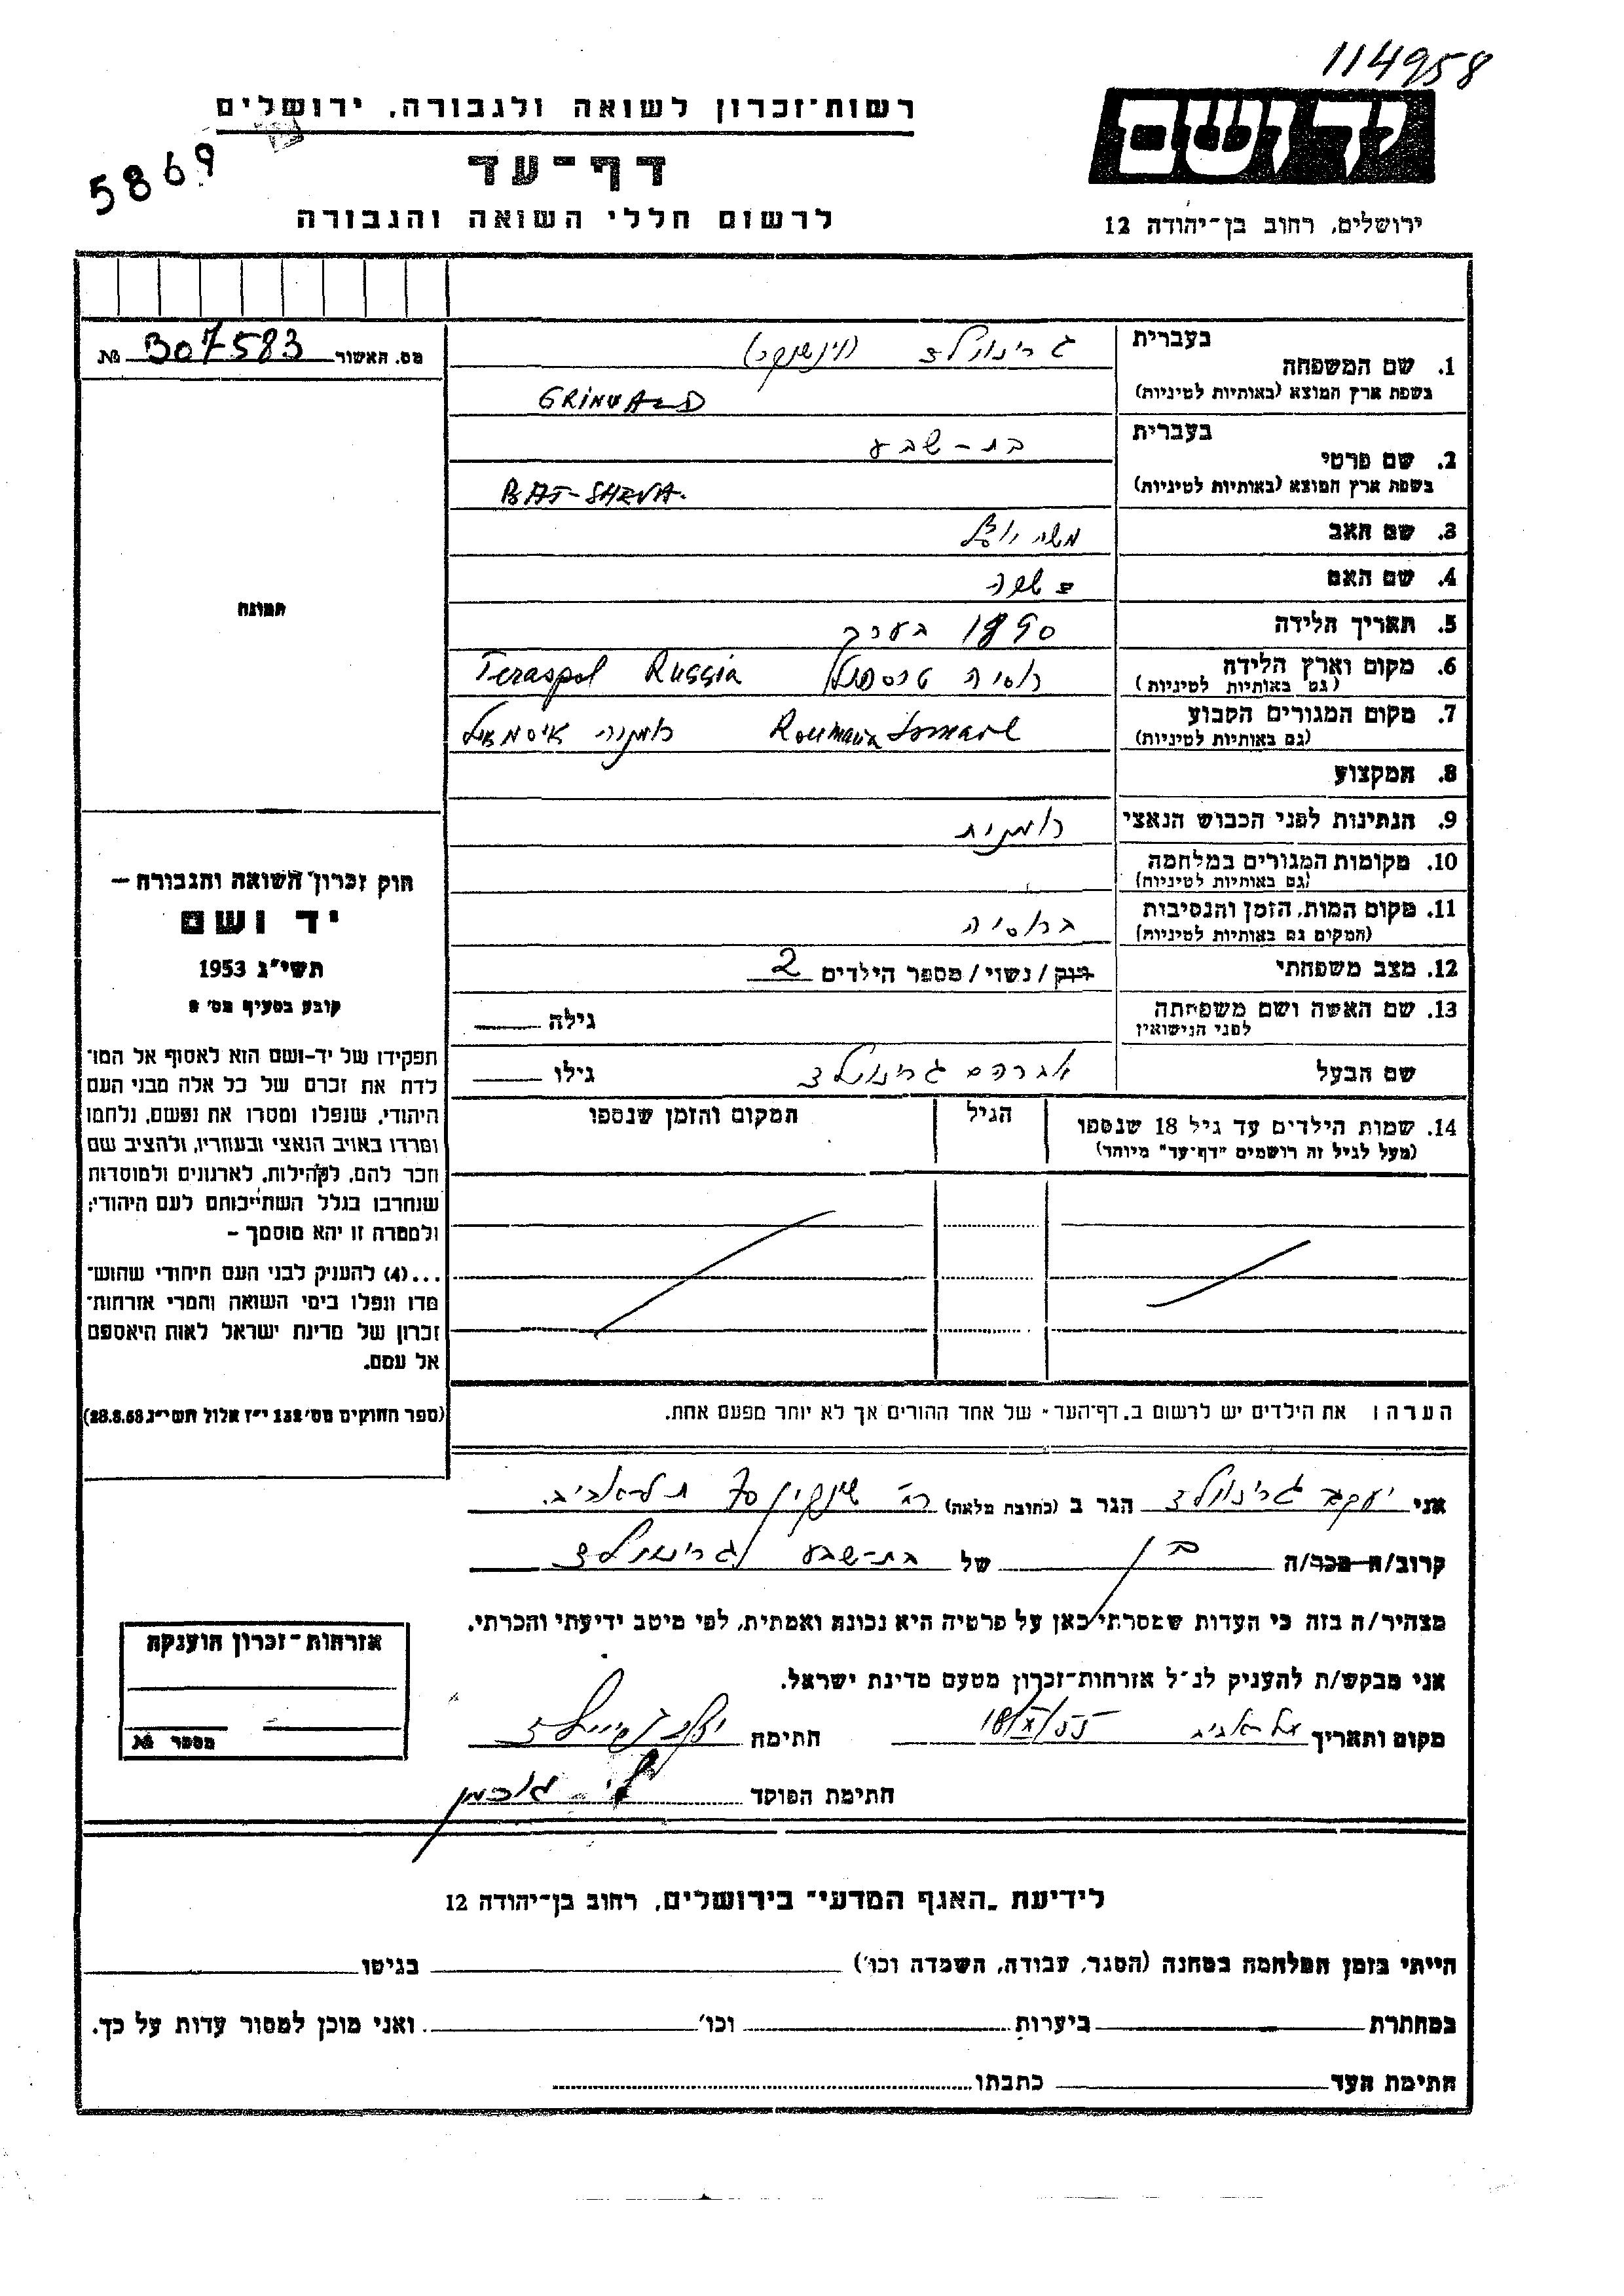 114958
רשות־זכרון לשואה ולגבורה, ירושלים
יד ושם
5869
דף־עד
לרשום חללי השואה והגבורה
ירושלים, רחוב בן־יהודה 12
מס. האשור 307583 №
תמונה
חוק זכרון השואה והגבורה —
יד ושם
תשי״ג 1953
קובע בסעיף מס׳ 2
תפקידו של יד-ושם הוא לאסוף אל המו־
לדת את זכרם של כל אלה מבני העם
היהודי, שנפלו ומסרו את נפשם, נלחמו
ומרדו באויב הנאצי ובעוזריו, ולהציב שם
וזכר להם, לקהילות, לארגונים ולמוסדות
שנחרבו בגלל השתייכותם לעם היהודי;
ולמטרה זו יהא מוסמך –
...(4) להעניק לבני העם היהודי שהוש־
מדו ונפלו בימי השואה והמרי אזרחות־
זכרון של מדינת ישראל לאות היאספם
אל עמם.
(ספר החוקים מס׳ 132 י״ז אלול תשי״ג 28.8.53)
בעברית גרינולד
1. שם המשפחה
בשפת ארץ המוצא (באותיות לטיניות) GRINVALD
בעברית בת-שבע
2. שם פרטי
בשפת ארץ המוצא (באותיות לטיניות) BAT-SHEVA.
3. שם האב משה
4. שם האם
5. תאריך הלידה 1890 בערך
6. מקום וארץ הלידה רוסיה טרספול Teraspol Russia
(גם באותיות לטיניות)
7. מקום המגורים הקבוע Roumania Ismael רומניה איסמאיל
(גם באותיות לטיניות)
8. המקצוע
9. הנתינות לפני הכבוש הנאצי רומנית
10. מקומות המגורים במלחמה
(גם באותיות לטיניות)
11. מקום המות, הזמן והנסיבות ברוסיה
(המקום גם באותיות לטיניות)
12. מצב משפחתי רווק/נשוי/מספר הילדים 2
13. שם האשה ושם משפחתה גילה
לפני הנישואין
שם הבעל אברהם גרינולד גילו
14. שמות הילדים עד גיל 18 שנספו הגיל המקום והזמן שנספו
(מעל לגיל זה רושמים "דף־עד" מיוחד)
הערה: את הילדים יש לרשום ב„דף־העד״ של אחד ההורים אך לא יותר מפעם אחת.
אני יעקב גרינולד הגר ב (כתובת מלאה) רח׳ שינקין 70 תל-אביב.
קרוב/ה מכר/ה בן של בת-שבע גרינולד
מצהיר/ה בזה כי העדות שמסרתי כאן על פרטיה היא נכונה ואמתית, לפי מיטב ידיעתי והכרתי.
אני מבקש/ת להעניק לנ״ל אזרחות־זכרון מטעם מדינת ישראל.
מקום ותאריך תל-אביב 18/X/55 חתימה יעקב גרינולד
חתימת הפוקד
אזרחות־זכרון הוענקה
מספר №
לידיעת „האגף המדעי״ בירושלים, רחוב בן־יהודה 12
הייתי בזמן המלחמה במחנה (הסגר, עבודה, השמדה וכו׳) בגיטו
במחתרת ביערות וכו׳ ואני מוכן למסור עדות על כך.
חתימת העד כתבתו